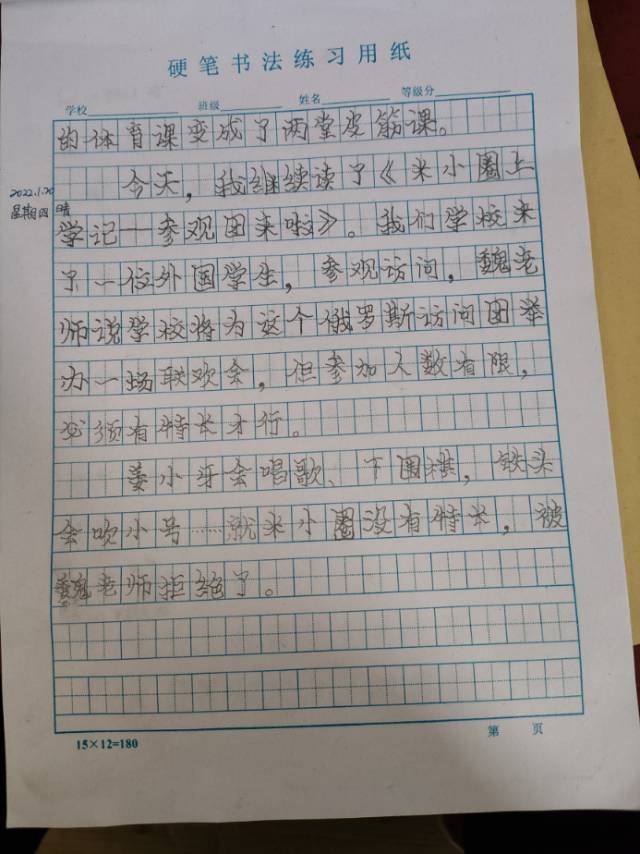 硬笔书法练习用纸
学校 班级 姓名 等级分
的体育课变成了两堂皮筋课。
2022.1.20
星期四 晴
今天，我继续读了《米小圈上
学记—参观团来啦》。我们学校来
了一位外国学生，参观访问，魏老
师说学校将为这个俄罗斯访问团举
办一场联欢会，但参加人数有限，
必须有特长才行。
姜小牙会唱歌、下围棋，铁头
会吹小号……就米小圈没有特长，被
魏老师拒绝了。
15×12=180
第 页